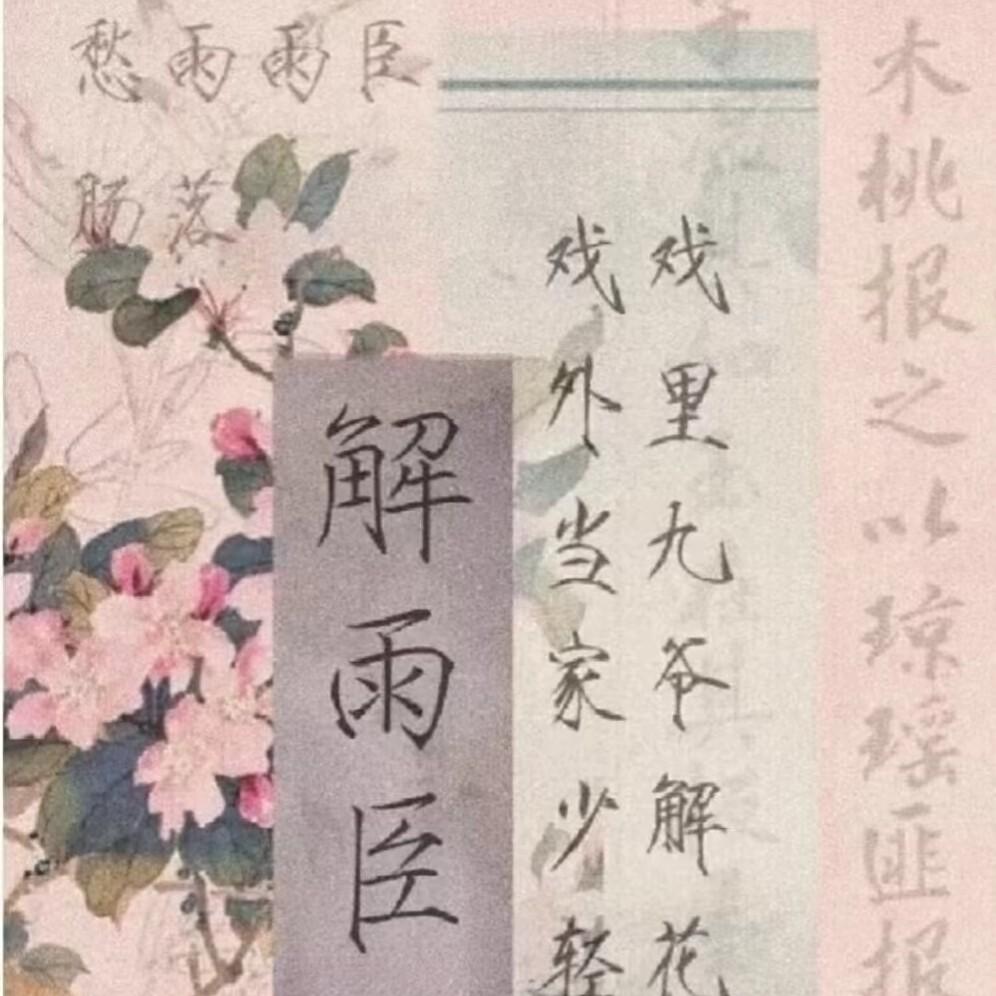 木桃报之以琼瑶匪报
戏里九爷解花
戏外当家少轻
解雨臣
臣
雨
雨落
愁肠